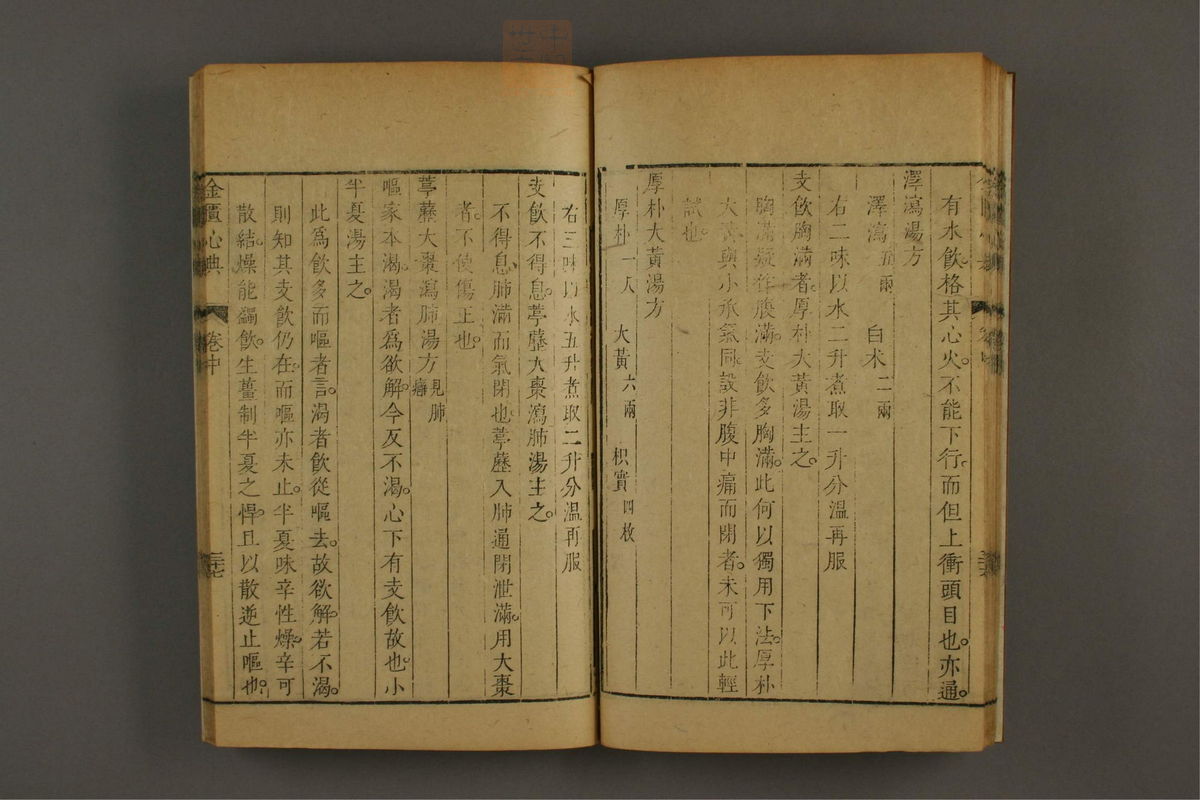 有水飲格其心火不能下行而但上衝頭目也亦通
澤瀉湯方
澤瀉五兩 白朮二兩
右二味以水二升煮取一升分溫再服
支飲胸滿者厚朴大黃湯主之
胸滿疑作腹滿支飲多胸滿此何以獨用下法厚朴
大黃與小承氣同設非腹中痛而閉者未可以此輕
試也
厚朴大黃湯方
厚朴一尺 大黃六兩 枳實四枚
右三味以水五升煮取二升分溫再服
支飲不得息葶藶大棗瀉肺湯主之
不得息肺滿而氣閉也葶藶入肺通閉泄滿用大棗
者不使傷正也
葶藶大棗瀉肺湯方見肺癰
嘔家本渴渴者爲欲解今反不渴心下有支飲故也小
半夏湯主之
此爲飲多而嘔者言渴者飲從嘔去故欲解若不渴
則知其支飲仍在而嘔亦未止半夏味辛性燥辛可
散結燥能蠲飲生薑制半夏之悍且以散逆止嘔也
金匱心典 卷中 二十七